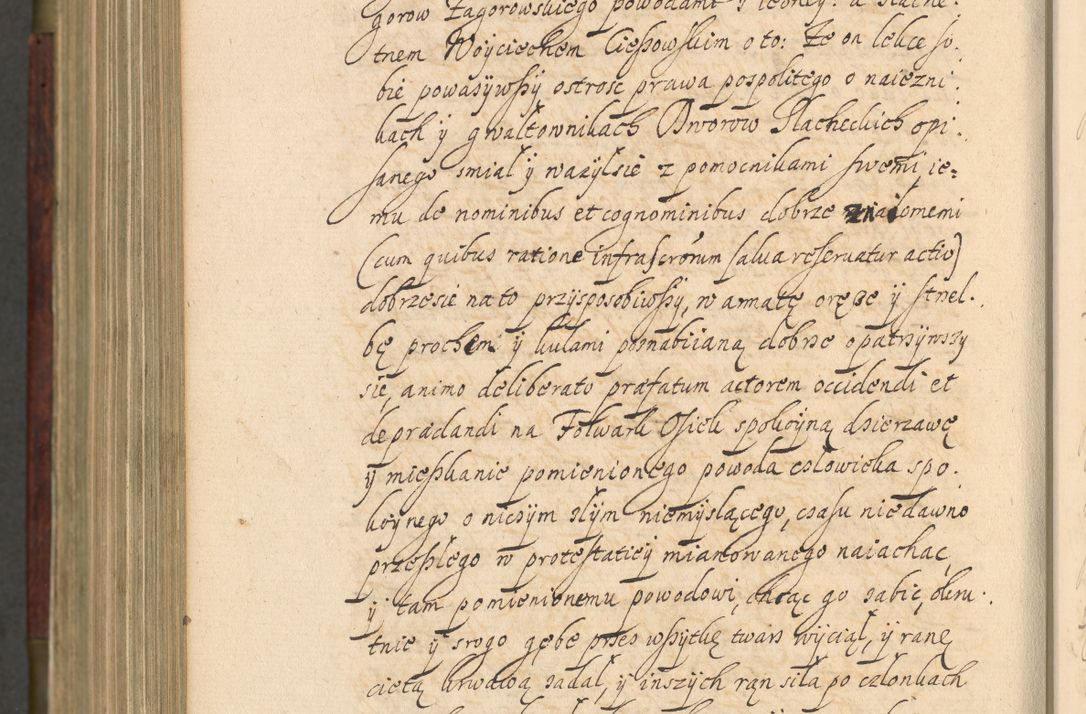 gorow Zagorowskiego powodami y iedney: a szlache:
tnem Woyciechem Cieszowskim o to: Ze on lekce so:
bie powazywszÿ ostrosc prawa pospolitego o naiezni:
kach ÿ gwałtownikach Dworow Slacheckich opi:
sanego smiał ÿ wazÿłsie z pomocnikami swemi ie=
mu de nominibus et cognominibus dobrze znaiomemi
(cum quibus ratione infrascrorum salva reservatur actio)
dobrzesie na to przÿsposobiwszÿ, w armatę oręze ÿ strel:
bę prochem ÿ kulami ponabiianą dobrze opatrzÿwszy
sie, animo deliberato præfatum actorem occidendi et
deprædandi na Folwark Osiek spokoyną dzierzawę
ÿ mieszkanie pomienionego powoda człowieka spo:
koÿnego o niczÿm złÿm niemÿslącego, czasu niedawno
przeszłego w protestatieÿ mianowanego naiachac,
ÿ tam pomienionemu powodowi, chcąc go zabić, okru:
tnie ÿ srogo gębe przes wszÿtkę twarz wÿciął, ÿ ranę
cietą krwawą zadał, ÿ inszÿch ran siła po członkach